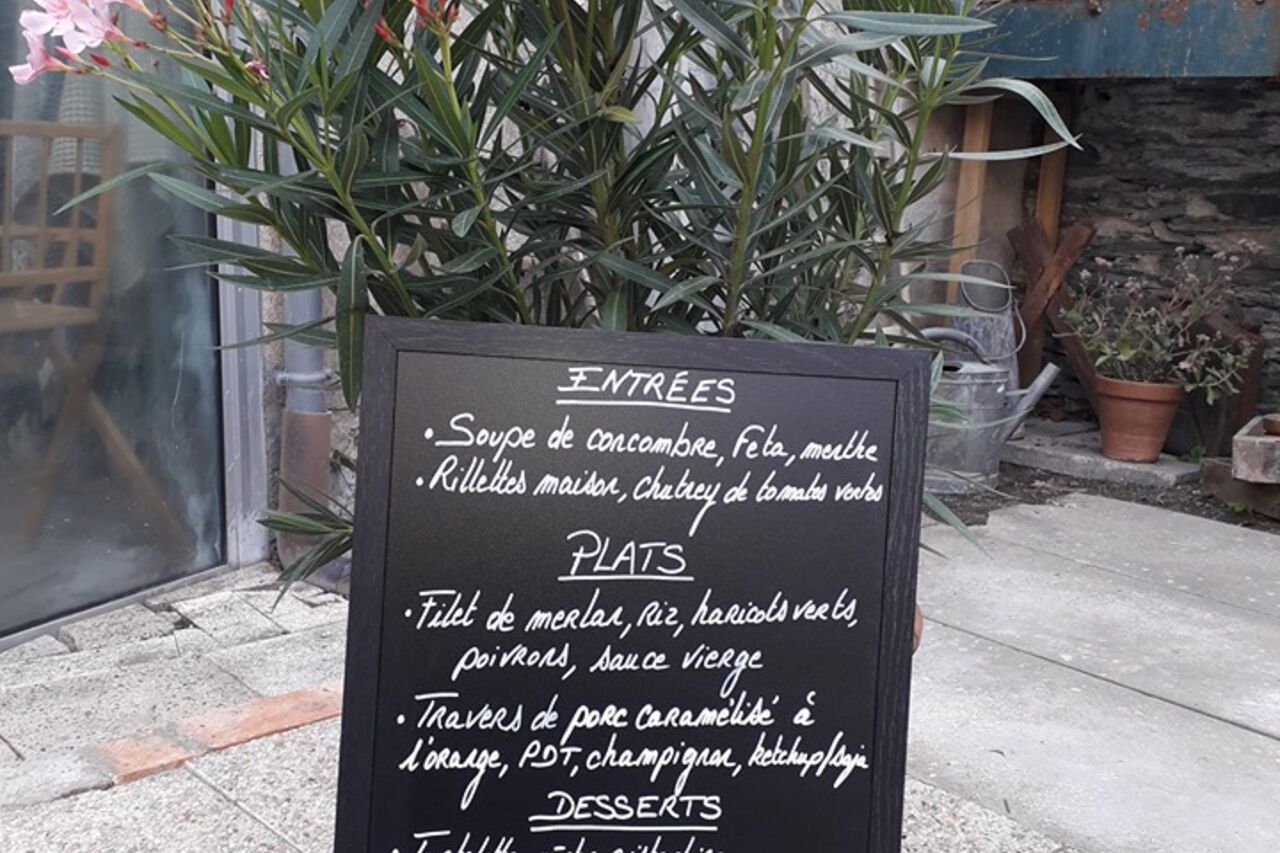 ENTRÉES
• Soupe de concombre, Feta, menthe
• Rillettes maison, Chutney de tomates vertes
PLATS
• Filet de merlan, Riz, haricots verts,
poivrons, sauce vierge
• Travers de porc caramélisé à
l'orange, PDT, champignon, ketchup/soja
DESSERTS